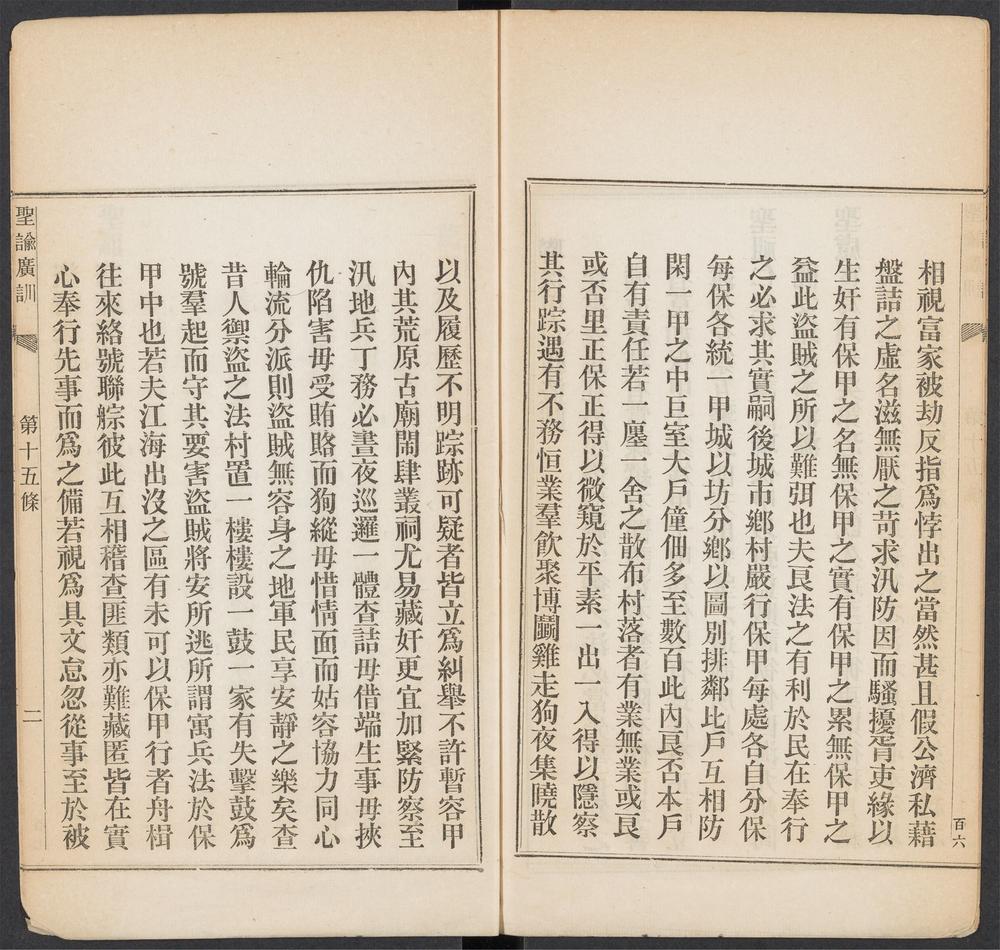 相視富家被劫反指爲悖出之當然甚且假公濟私藉
盤詰之虛名滋無厭之苛求汛防因而騷擾胥吏緣以
生奸有保甲之名無保甲之實有保甲之累無保甲之
益此盜賊之所以難弭也夫良法之有利於民在奉行
之必求其實嗣後城市鄉村嚴行保甲每處各自分保
每保各統一甲城以坊分鄉以圖別排鄰比戶互相防
閑一甲之中巨室大戶僮佃多至數百此內良否本戶
自有責任若一廛一舍之散布村落者有業無業或良
或否里正保正得以微窺於平素一出一入得以隱察
其行踪遇有不務恒業羣飲聚博鬬雞走狗夜集曉散
百六
以及履歷不明踪跡可疑者皆立爲糾舉不許暫容甲
內其荒原古廟鬧肆叢祠尤易藏奸更宜加緊防察至
汛地兵丁務必晝夜巡邏一體查詰毋借端生事毋挾
仇陷害毋受賄賂而狥縱毋惜情面而姑容協力同心
輪流分派則盜賊無容身之地軍民享安靜之樂矣查
昔人禦盜之法村置一樓樓設一鼓一家有失擊鼓爲
號羣起而守其要害盜賊將安所逃所謂寓兵法於保
甲中也若夫江海出沒之區有未可以保甲行者舟楫
往來絡號聯䑸彼此互相稽查匪類亦難藏匿皆在實
心奉行先事而爲之備若視爲具文怠忽從事至於被
聖諭廣訓
第十五條
二